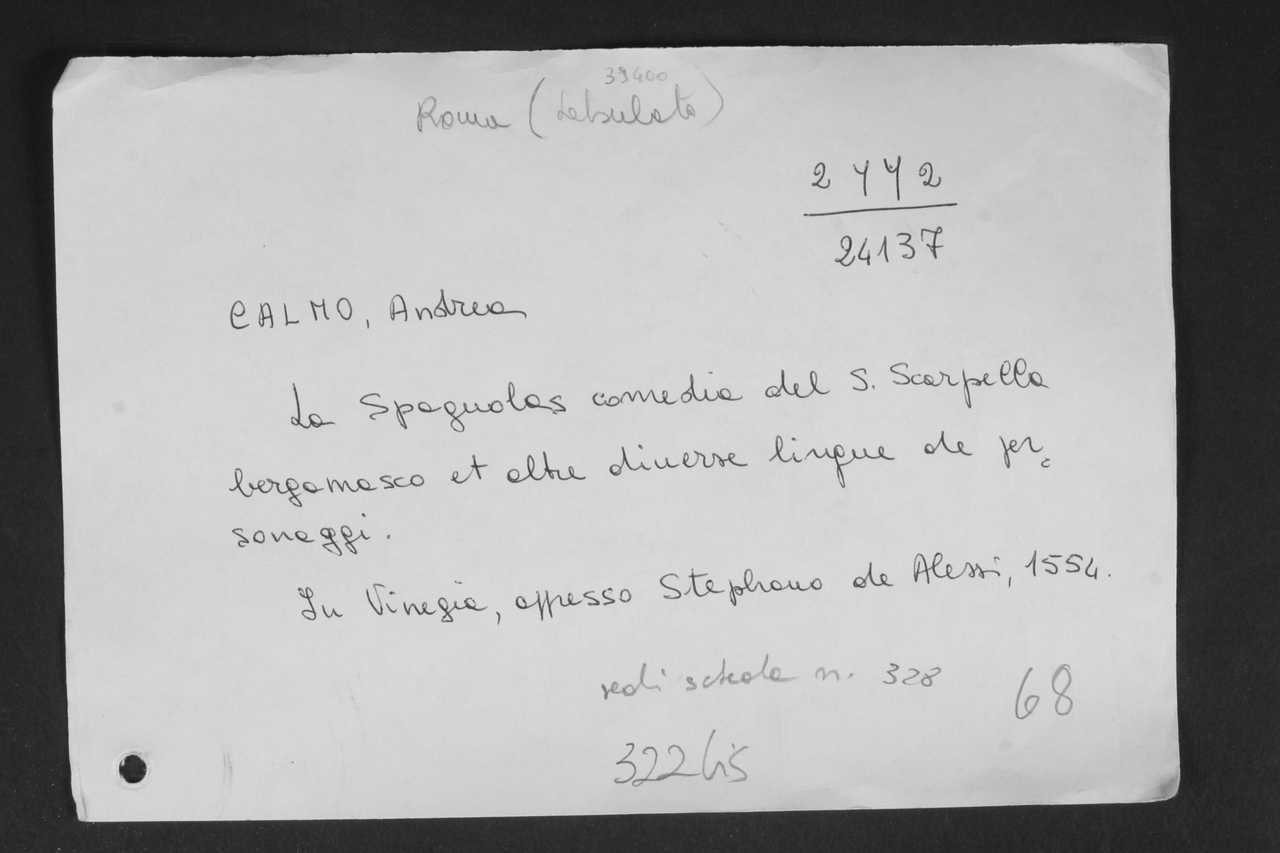 39400
Roma (Labulato)
2 YY2
24137
CALMO, Andrea
La Spagnolas comedia del S. Scarpella
bergamasco et altre diverse lingue de per,
sonaggi.
In Vinegia, appresso Stephano de Alessi, 1554.
vedi scheda n. 328
68
322 bis